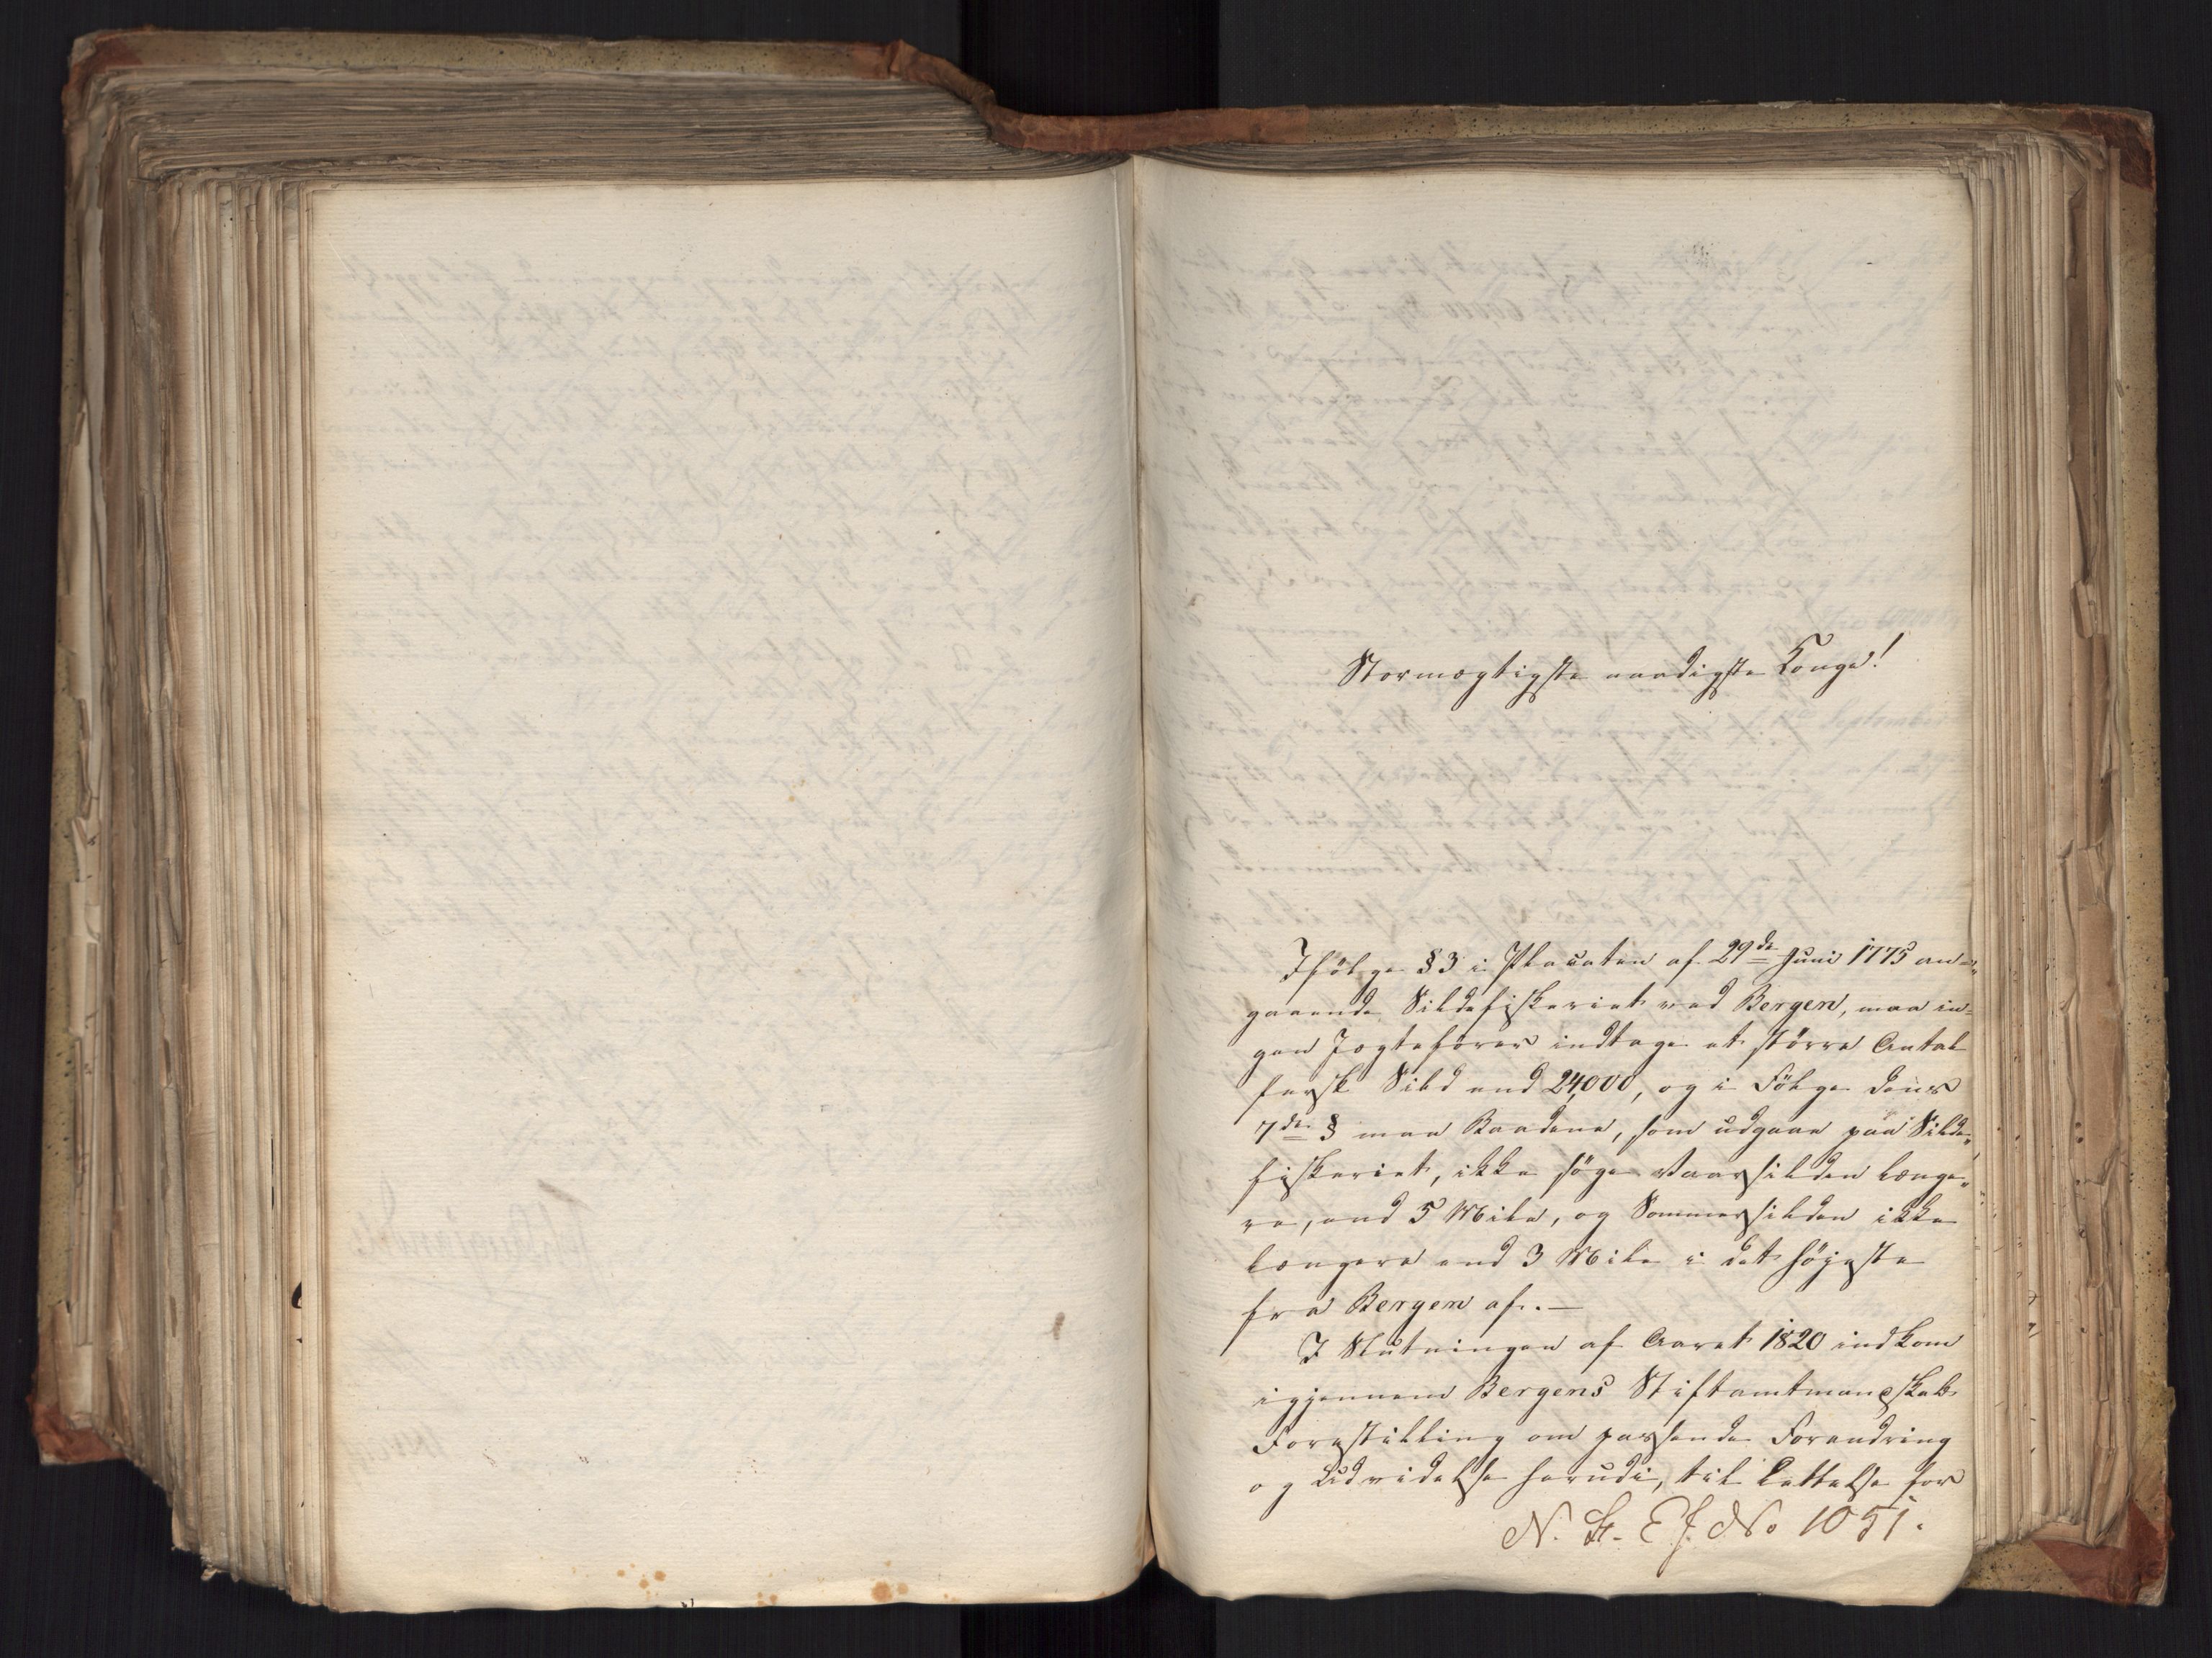 Stormægtigste naadigste Konge!
Ifölge §3 i Placaten af 29de Juni 1775 an-
gaaende Sildefiskeriet ved Bergen, maa in-
gen Jægtefører indtage et større Antal
fersk Sild end 24,000, og i Fölge dens
7de § maa Baadene, som udgaae paa Silde-
fiskeriet, ikke söge Vaarsilden længe-
re, end 5 Mile, og Sommersilden ikke
længere end 3 Mile i det höjeste
fra Bergen af. —
I Slutningen af Aaret 1820 indkom
igjennem Bergens Stiftamtmandskab
Forestilling om passende Forandring
og Udvidelse herudi, til Lettelse for
N. St. Ef. No 1051.